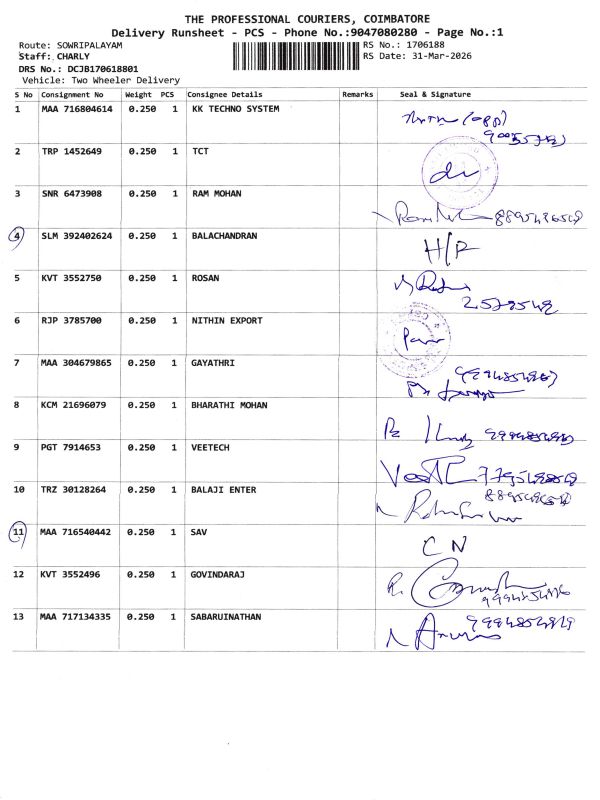 THE PROFESSIONAL COURIERS, COIMBATORE
Delivery Runsheet - PCS - Phone No.:9047080280 - Page No.:1
Route: SOWRIPALAYAM RS No.: 1706188
Staff: CHARLY RS Date: 31-Mar-2026
DRS No.: DCJB170618801
Vehicle: Two Wheeler Delivery
S No Consignment No Weight PCS Consignee Details Remarks Seal & Signature
1 MAA 716804614 0.250 1 KK TECHNO SYSTEM
2 TRP 1452649 0.250 1 TCT
3 SNR 6473908 0.250 1 RAM MOHAN
4 SLM 392402624 0.250 1 BALACHANDRAN H/P
5 KVT 3552750 0.250 1 ROSAN
6 RJP 3785700 0.250 1 NITHIN EXPORT
7 MAA 304679865 0.250 1 GAYATHRI
8 KCM 21696079 0.250 1 BHARATHI MOHAN
9 PGT 7914653 0.250 1 VEETECH
10 TRZ 30128264 0.250 1 BALAJI ENTER
11 MAA 716540442 0.250 1 SAV CN
12 KVT 3552496 0.250 1 GOVINDARAJ
13 MAA 717134335 0.250 1 SABARUINATHAN